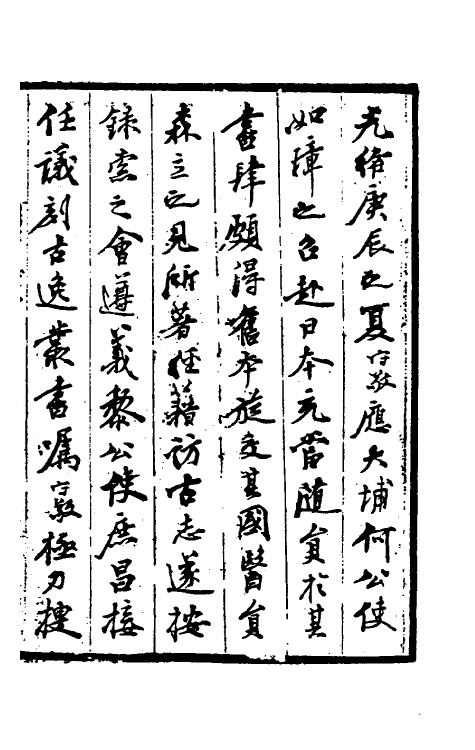 光緒庚辰之夏守敬應大埔何公使
如璋之召赴日本充當随員於其
書肆頗得舊本旋交其國醫員
森立之見所著經籍訪古志遂按
錄索之會遵義黎公使庶昌接
任議刻古逸叢書嘱守敬極力搜